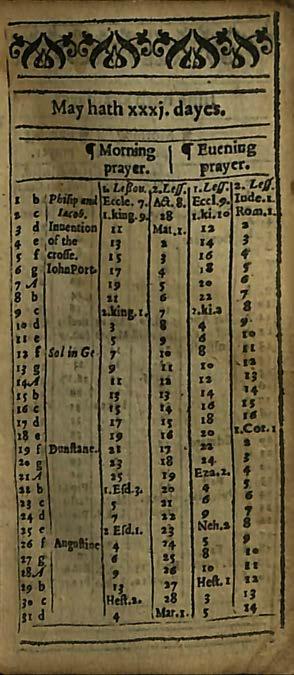 May hath xxxj. dayes.
¶ Morning prayer. | ¶ Euening prayer.
1. Lesson. 2. Less. 1. Less. 2. Less.
1 b Philip and Eccle. 7. Act. 8. Eccl. 9. Iude. 1.
2 c Iacob. 1.king. 9. 28 1.ki. 10 Rom. 1.
3 d Inuention 11 Mat. 1. 12 2
4 e of the 13 2 14 3
5 f crosse. 15 3 16 4
6 g Iohn Port. 17 4 18 5
7 A 19 5 20 6
8 b 21 6 22 7
9 c 2.king. 1. 7 2.ki. 2 8
10 d 3 8 4 9
11 e 5 9 6 10
12 f Sol in Ge 7 10 8 11
13 g 9 11 10 12
14 A 11 12 12 13
15 b 13 13 14 14
16 c 15 14 16 15
17 d 17 15 18 16
18 e 19 16 20 1.Cor. 1
19 f Dunstane. 21 17 22 2
20 g 23 18 24 3
21 A 25 19 Eza. 2. 4
22 b 1.Esd. 3. 20 4 5
23 c 5 21 6 6
24 d 7 22 9 7
25 e 2 Esd. 1. 23 Neh. 2 8
26 f Augustine 4 24 5 9
27 g 6 25 8 10
28 A 9 26 10 11
29 b 13 27 Hest. 1 12
30 c Hest. 2. 28 3 13
31 d 4 Mar. 1. 5 14